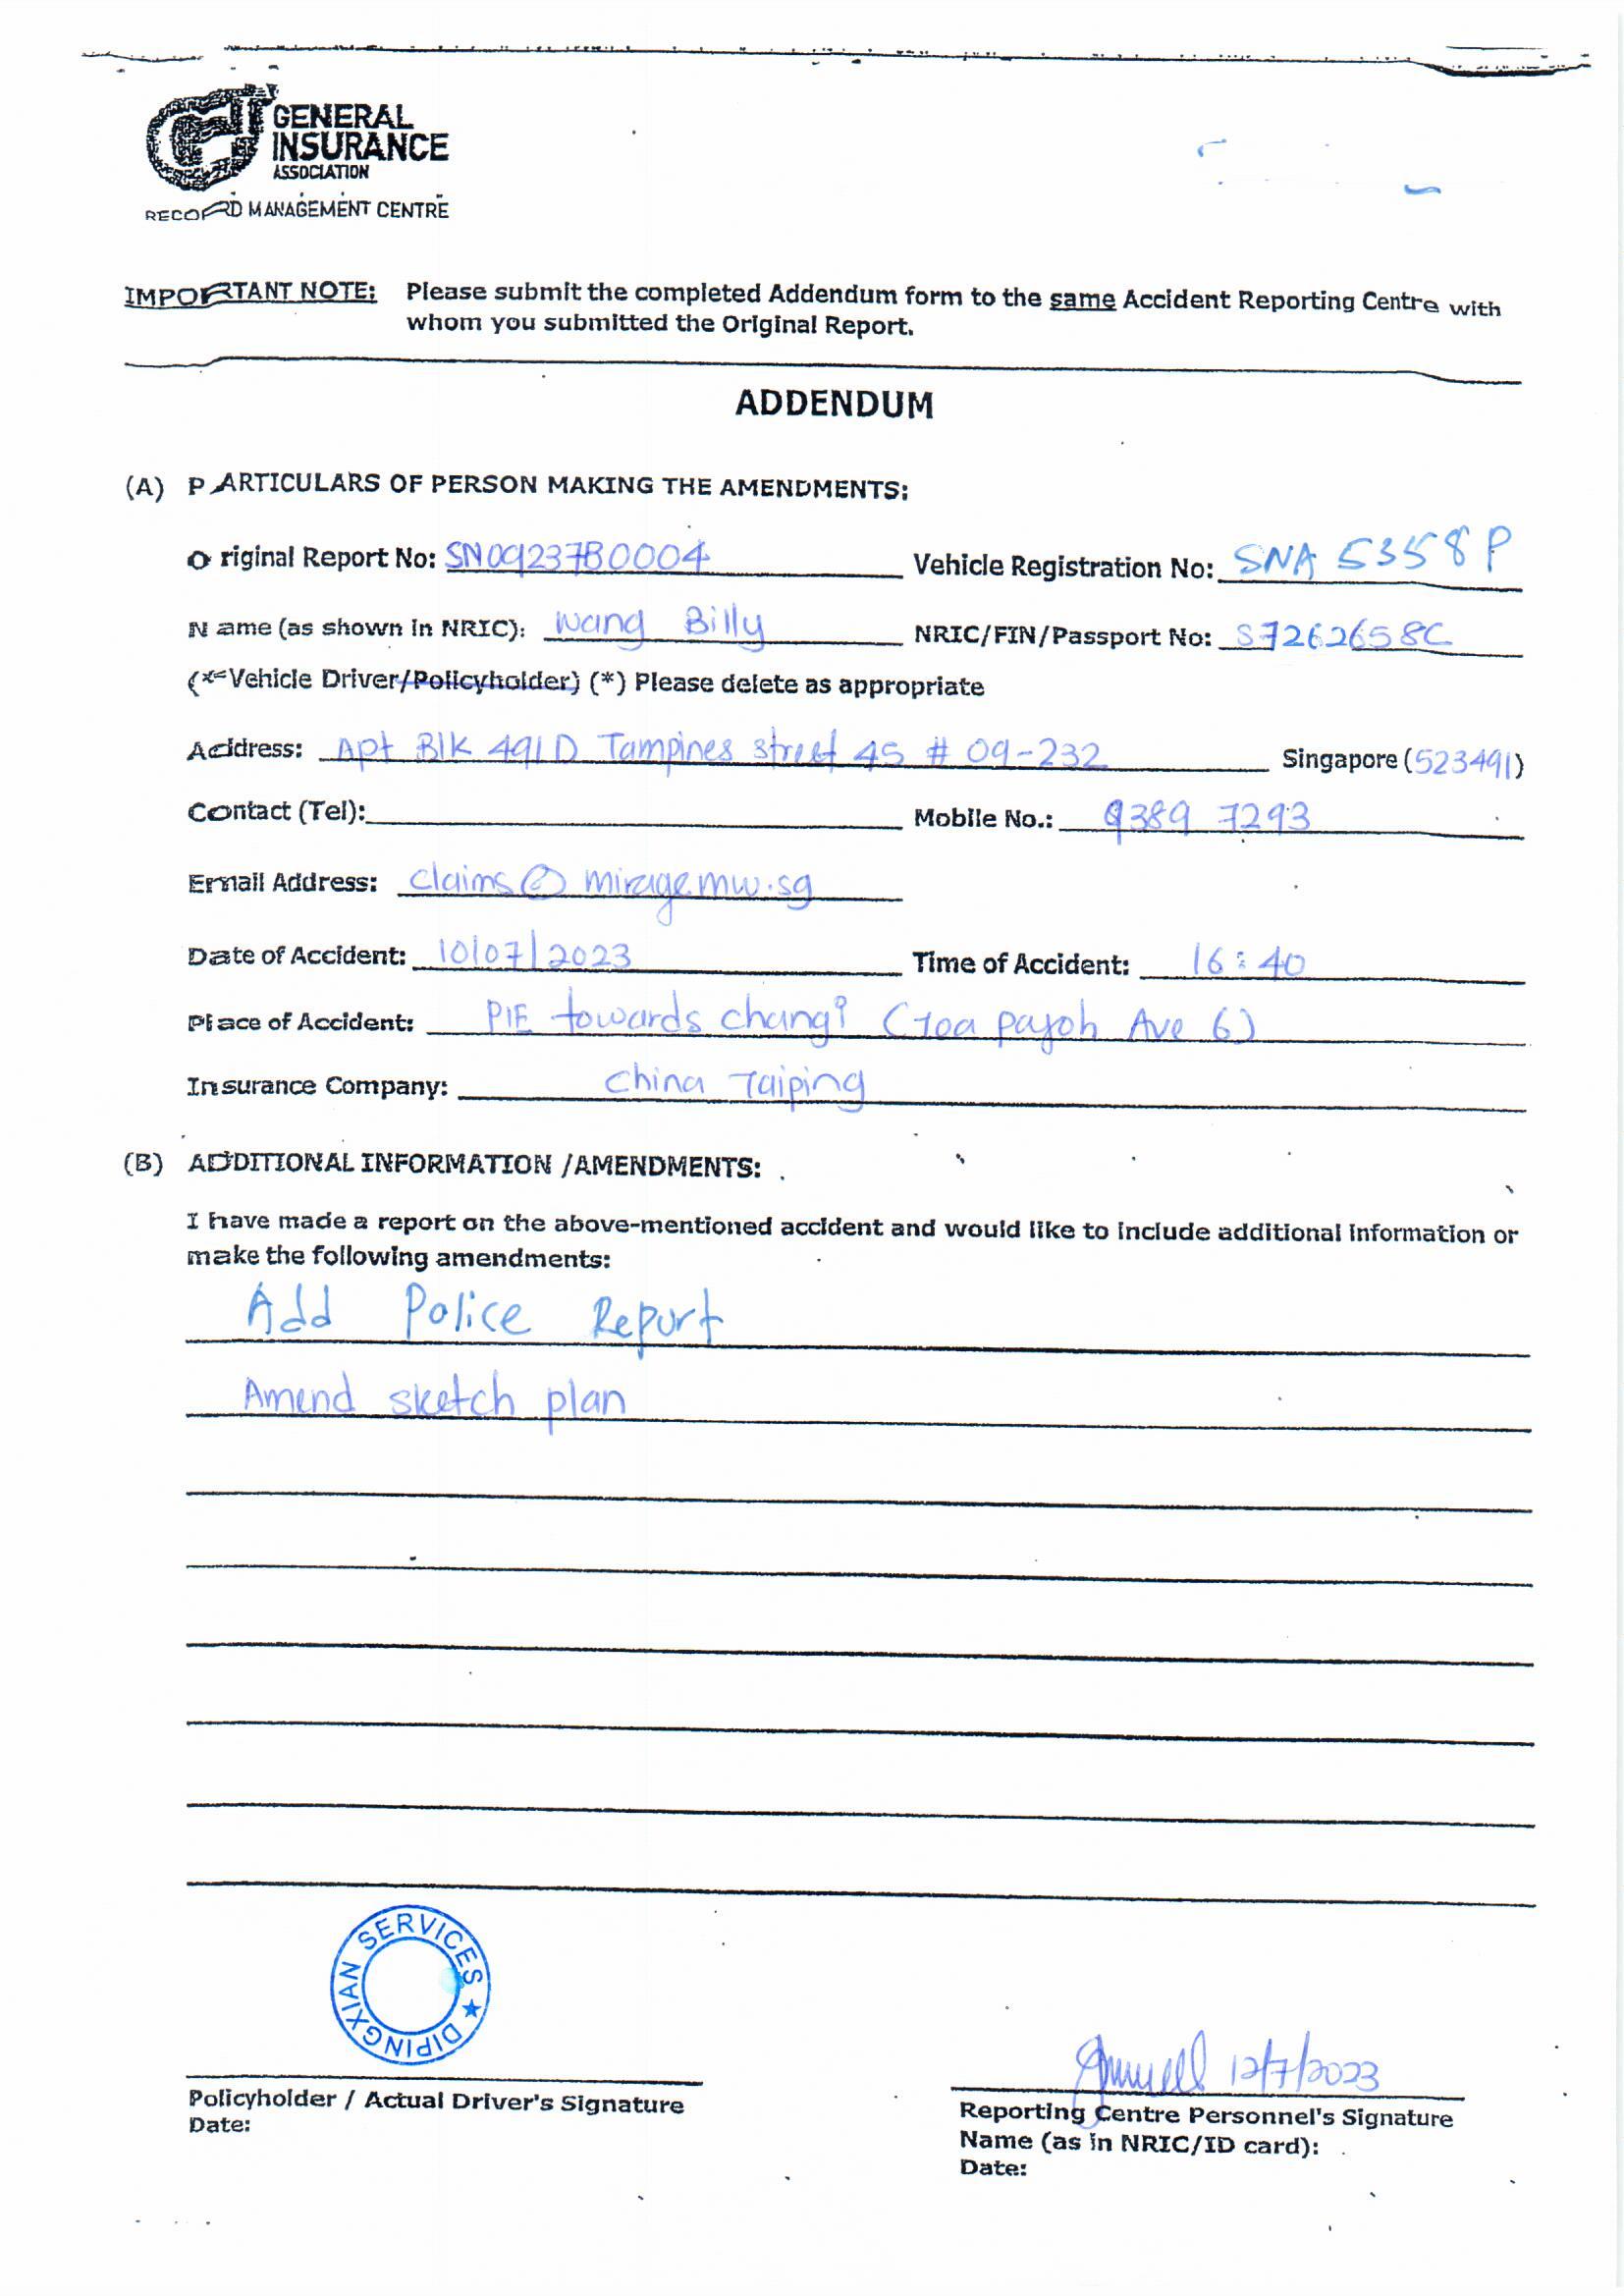 GENERAL
INSURANCE
ASSOCIATION
RECORD MANAGEMENT CENTRE
IMPORTANT NOTE: Please submit the completed Addendum form to the same Accident Reporting Centre with
whom you submitted the Original Report.
ADDENDUM
(A) PARTICULARS OF PERSON MAKING THE AMENDMENTS:
Original Report No: SN09237B0004 Vehicle Registration No: SNA 5358P
Name (as shown in NRIC): Wang Billy NRIC/FIN/Passport No: S7262658C
(*Vehicle Driver/Policyholder) (*) Please delete as appropriate
Address: Apt Blk 491D Tampines street 45 # 09-232 Singapore (523491)
Contact (Tel): Mobile No.: 9389 7293
Email Address: claims@miragemw.sg
Date of Accident: 10/07/2023 Time of Accident: 16:40
Place of Accident: PIE towards changi (Toa payoh Ave 6)
Insurance Company: China Taiping
(B) ADDITIONAL INFORMATION /AMENDMENTS:
I have made a report on the above-mentioned accident and would like to include additional information or
make the following amendments:
Add Police Report
Amend sketch plan
DIPINGXIAN SERVICES ★
12/7/2023
Policyholder / Actual Driver's Signature
Date:
Reporting Centre Personnel's Signature
Name (as in NRIC/ID card):
Date: